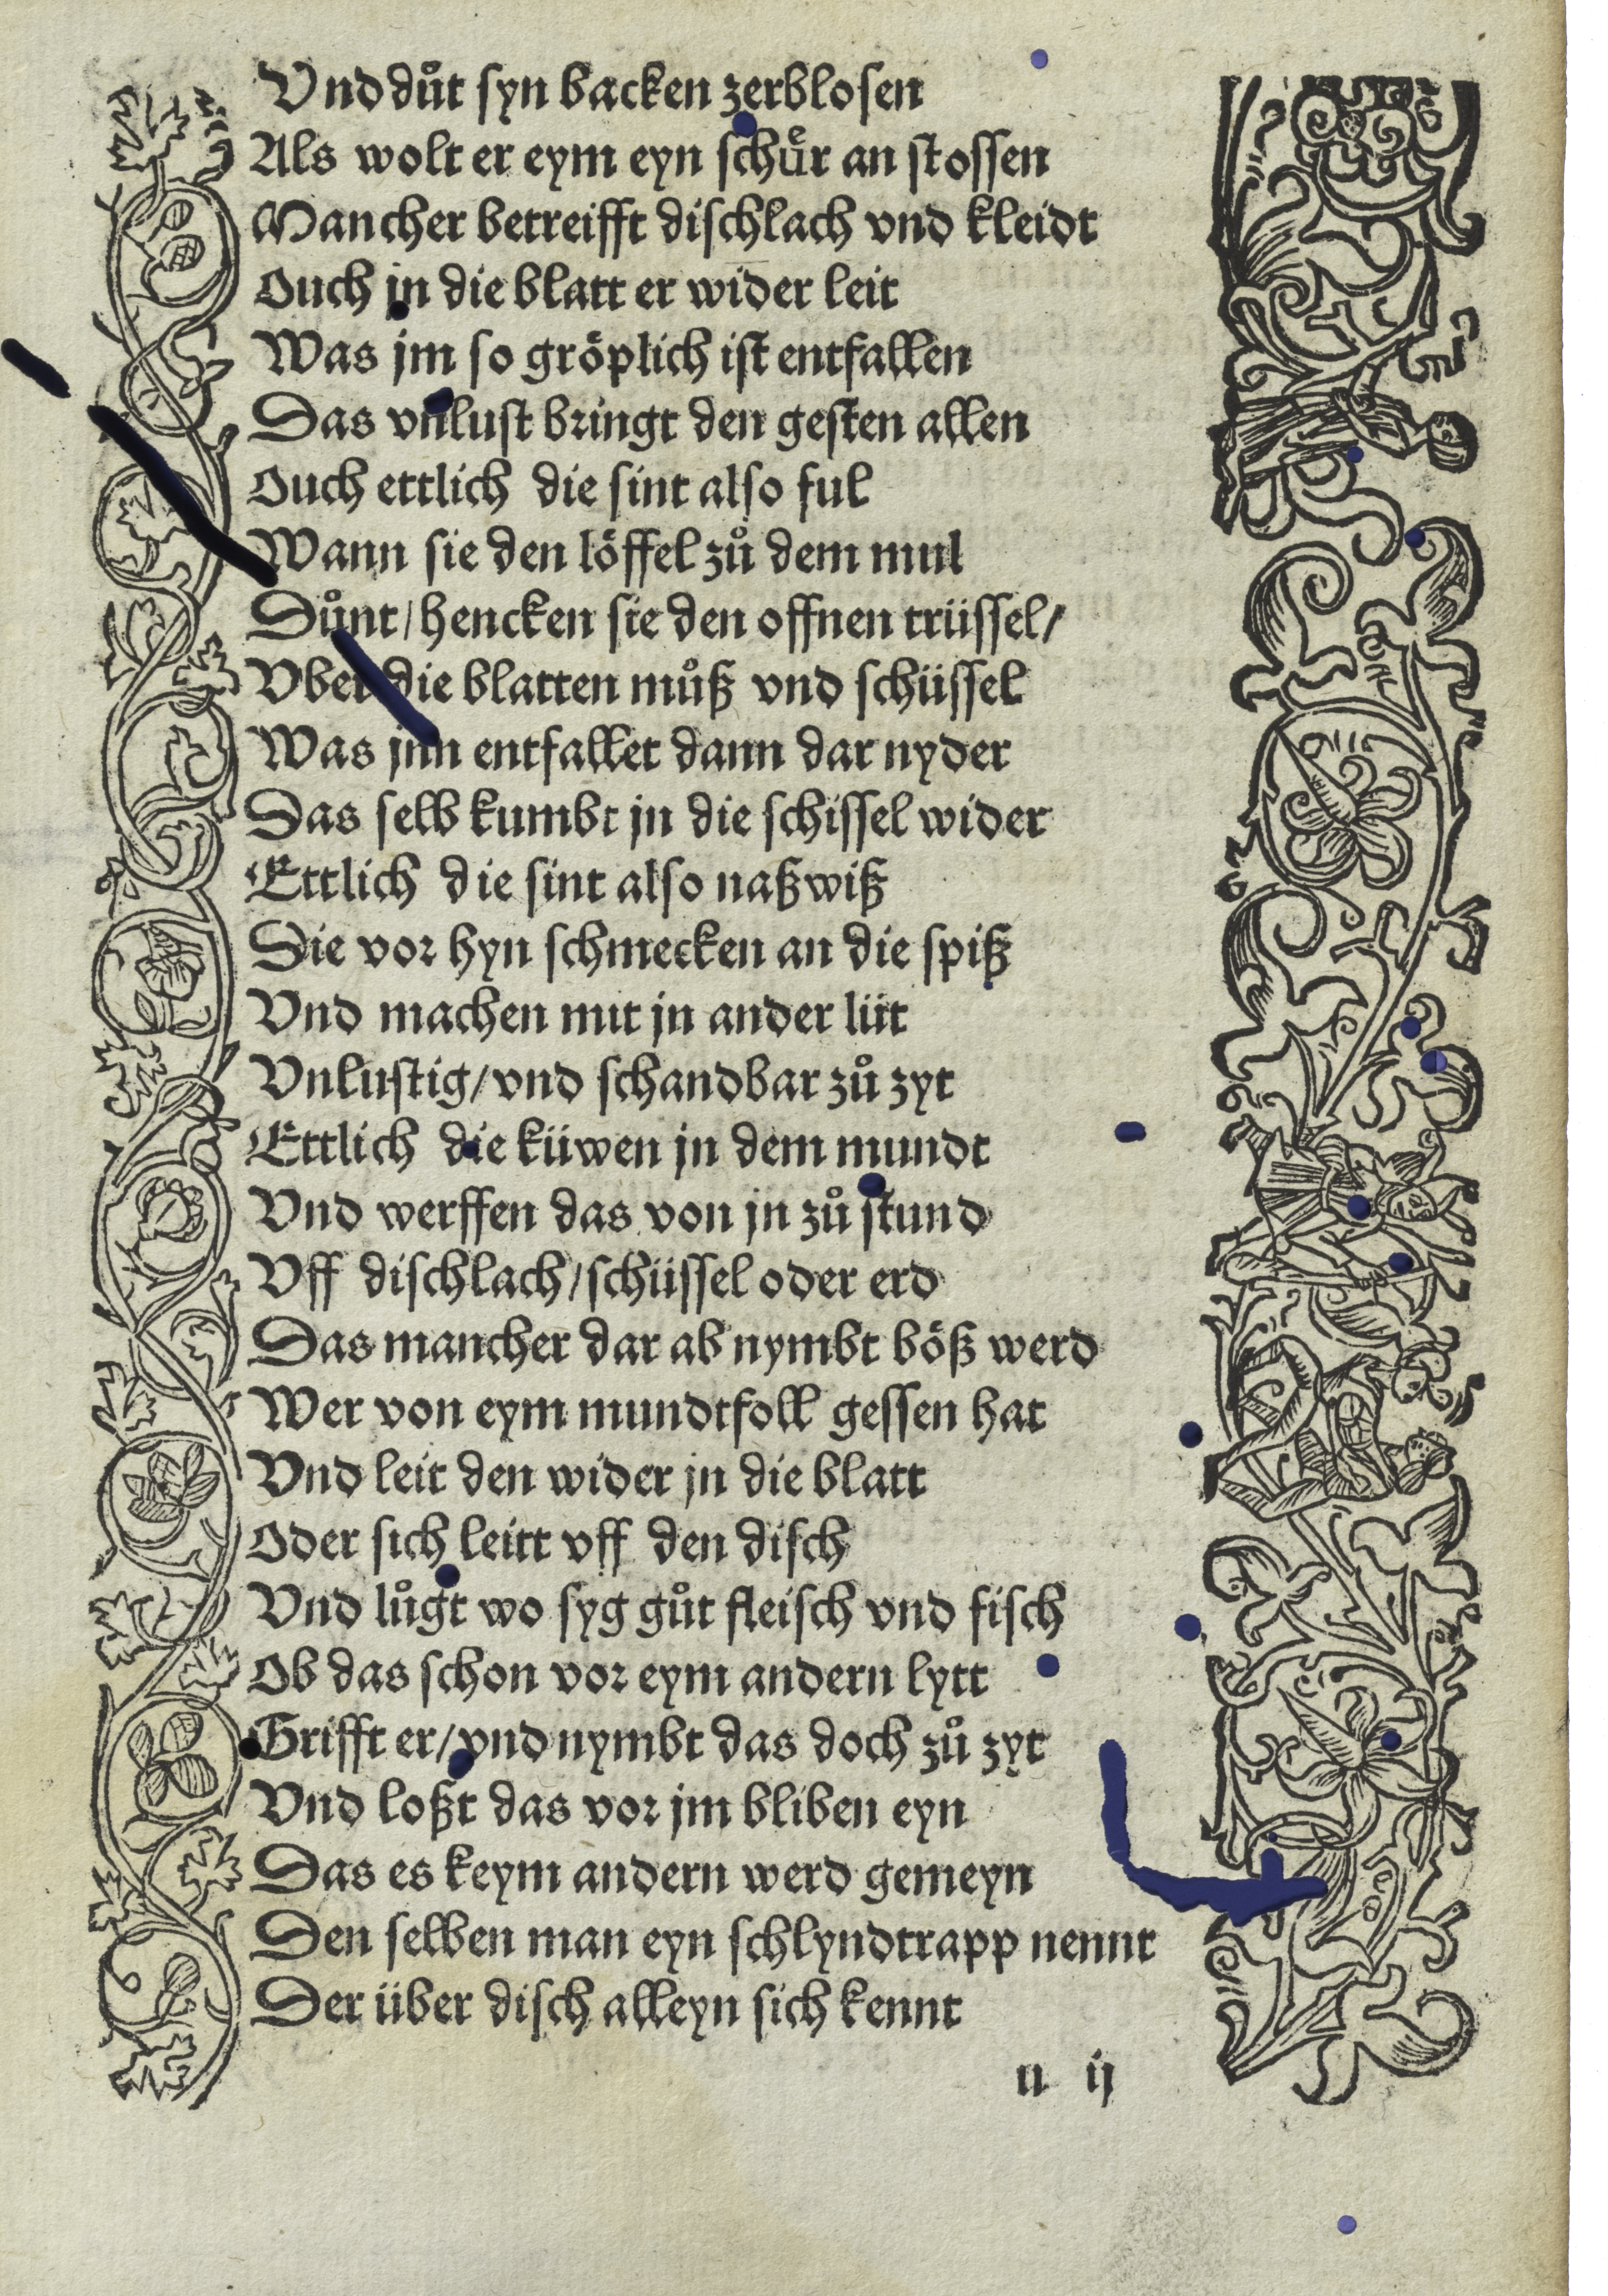 Vnd důt syn backen zerblosen
Als wolt er eym eyn schüͤr an stossen
Mancher betreifft dischlach vnd kleidt
Ouch jn die blatt er wider leit
Was jm so gröplich ist entfallen
Das vnlust bringt den gesten allen
Ouch ettlich die sint also ful
Wann sie den löffel zů dem mul
Důnt/ hencken sie den offnen trüssel/
Vber die blatten můß vnd schüssel
Was jnn entfallet dann dar nyder
Das selb kumbt jn die schissel wider
Ettlich die sint also naßwiß
Sie vor hyn schmecken an die spiß
Vnd machen mit jn ander lüt
Vnlustig/ vnd schandbar zů zyt
Ettlich die küwen jn dem mundt
Vnd werffen das von jn zů stund
Vff dischlach/ schüssel oder erd
Das mancher dar ab nymbt böß werd
Wer von eym mundtfoll gessen hat
Vnd leit den wider jn die blatt
Oder sich leitt vff den disch
Vnd lůgt wo syg gůt fleisch vnd fisch
Ob das schon vor eym andern lytt
Grifft er/ vnd nymbt das doch zů zyt
Vnd loßt das vor jm bliben eyn
Das es keym andern werd gemeyn
Den selben man eyn schlyndtrapp nennt
Der über disch alleyn sich kennt
n ij